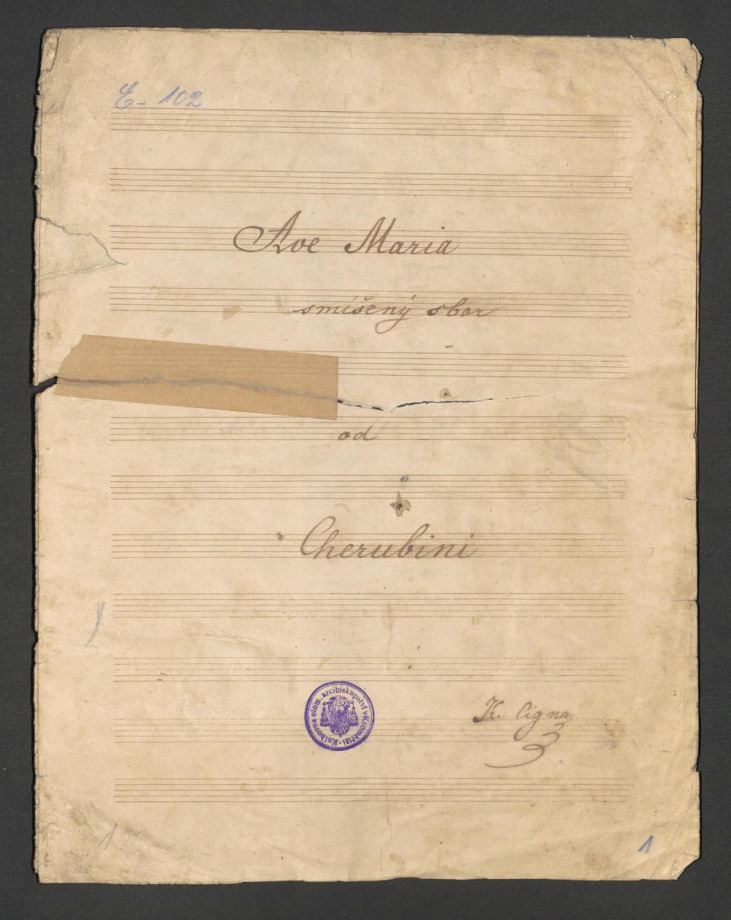 E- 102
Ave Maria
smíšený sbor
od
Cherubini
Knihovna olom. arcibiskupství v Kroměříži
K. Cigna
1
1